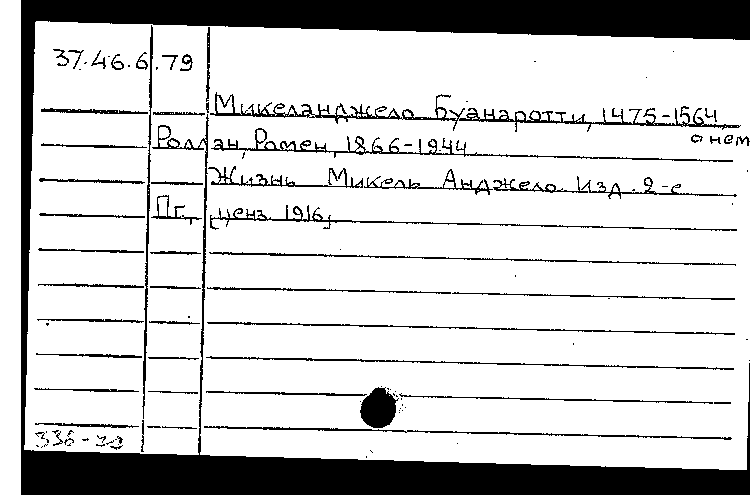 37.46.6.79
Микеланджело Буанаротти, 1475-1564,
о нем
Роллан, Ромен, 1866-1944.
Жизнь Микель Анджело. Изд. 2-е
Пг., [ценз. 1916].